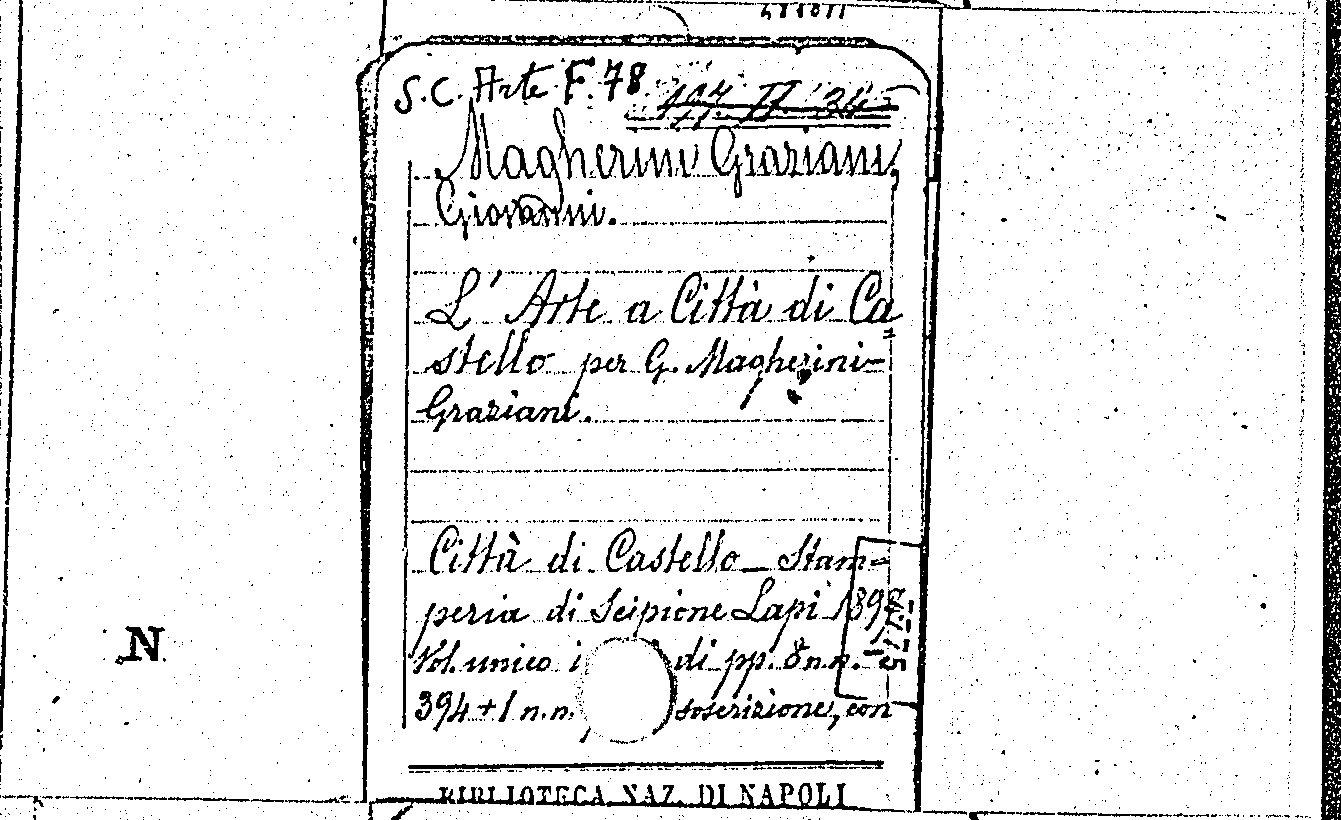 S.C. Arte F. 78.
Magherini Graziani,
Giovanni.
L' Arte a Città di Ca=
stello per G. Magherini-
Graziani.
Città di Castello_ Stam=
peria di Scipione Lapi
Vol. unico di pp. 8 n.n.
394+1 n.n. soscrizione, con
BIBLIOTECA NAZ. DI NAPOLI
N